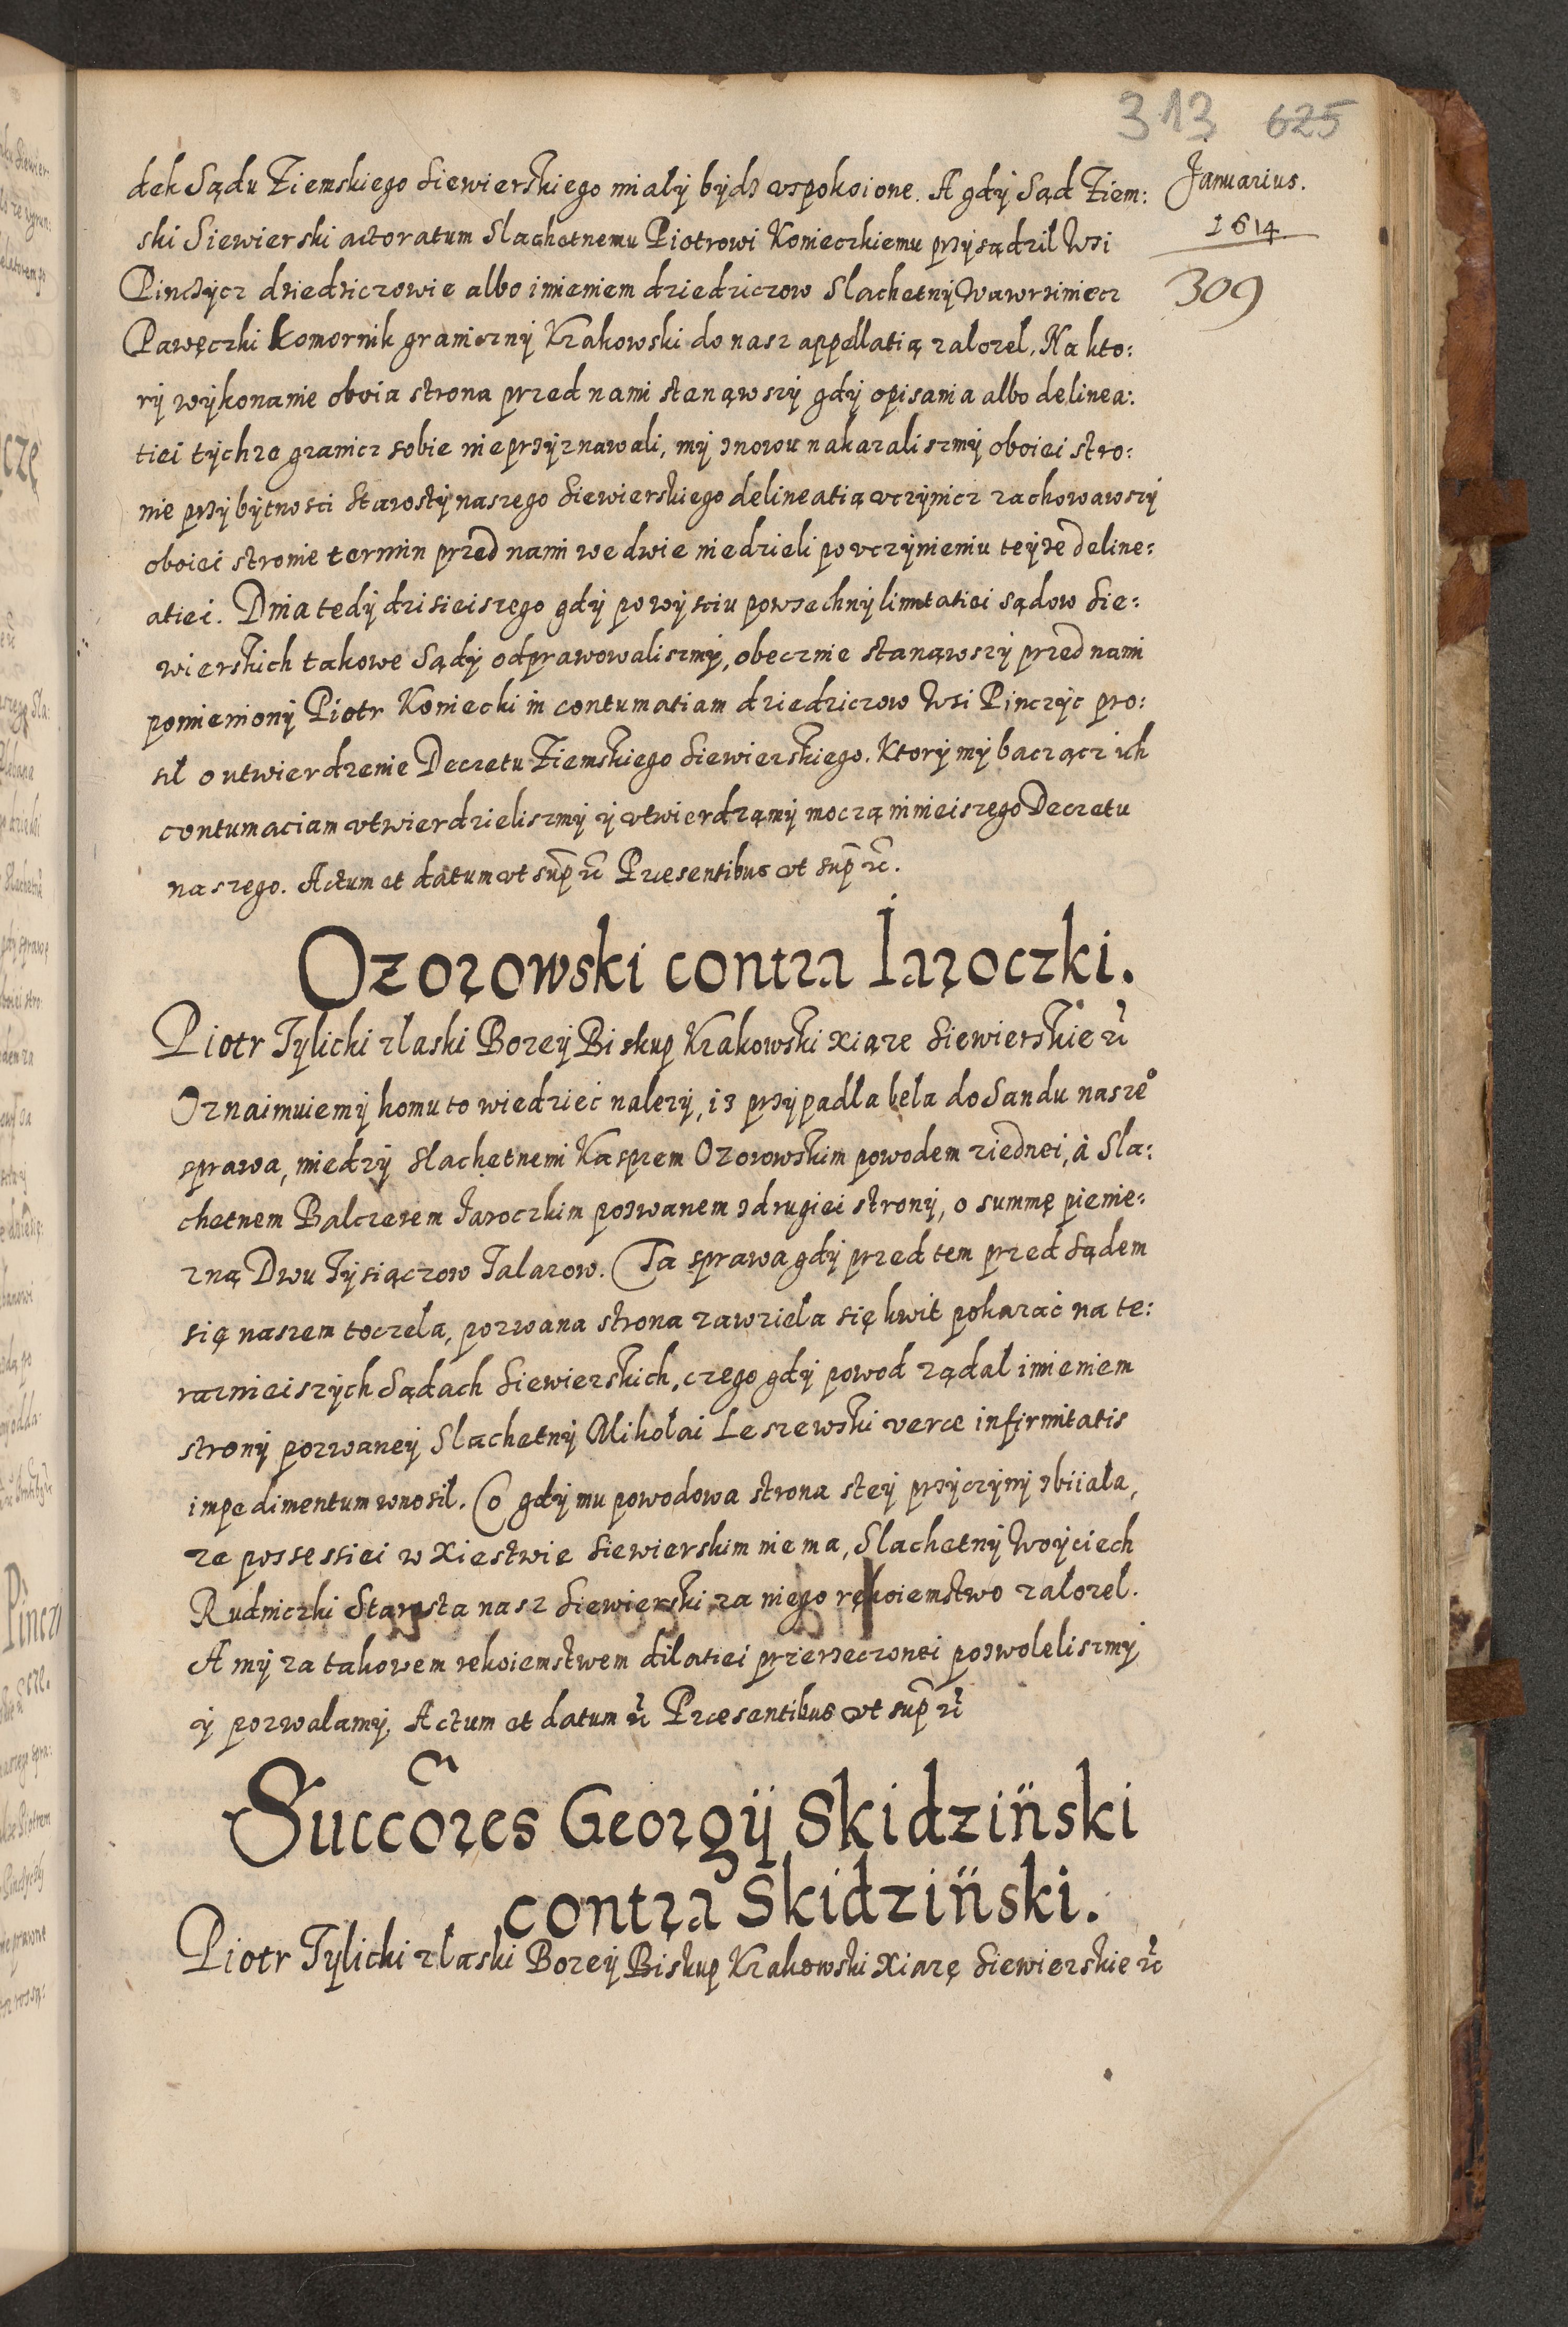 313 625
Januarius.
1614
309
dek Sądu Ziemskiego Siewierskiego miały bydz vspokoione. A gdÿ Sąd Ziem:
ski Siewierski actoratum Slachetnemu Piotrowi Konieczkiemu przÿsądził Wsi
Pinczÿcz dziedziczowie albo imieniem dziedziczow Slachetnÿ Wawrziniecz
Pawęczki Komornik granicznÿ Krakowski do nasz appellatią założel. Na kto:
rÿ wÿkonanie oboia strona przed nami stanąwszÿ gdÿ opisania albo delinea:
tiei tÿchze granicz sobie nieprzÿznawali, mÿ znowu nakazaliszmÿ oboiei stro:
nie przÿ bÿtnosci Starostÿ naszego Siewierskiego delineatią vczÿnicz zachowawszÿ
oboiei stronie termin przed nami we dwie niedzieli po vczÿnieniu teÿze deline:
atiei. Dnia tedÿ dzisieiszego gdÿ po wÿsciu powszechnÿ limitatiei sądow Sie:
wierskich takowe Sądÿ odprawowaliszmÿ, obecznie stanąwszÿ przed nami
pomienionÿ Piotr Koniecki in contumatiam dziedziczow Wsi Pinczÿc pro:
sił o utwierdzenie Decretu Ziemskiego Siewierskiego. Ktorÿ mÿ bacząc ich
contumaciam vtwierdzieliszmÿ ÿ vtwierdzamÿ moczą ninieiszego Decretu
naszego. Actum et datum vt sup etc Præsentibus vt sup etc.
Ozorowski contra Iaroczki.
Piotr Tÿlicki z łaski Bozeÿ Biskup Krakowski Xiąze Siewierskie etc
Oznaimuiemÿ komu to wiedzieć nalezÿ, iz przÿpadła beła do Sandu nasze°
sprawa, miedzÿ Slachetnemi Kasprem Ozorowskim powodem ziednei, à Sla:
chetnem Balczerem Jaroczkim pozwanem z drugiei stronÿ, o summę pienie:
zną Dwu Tÿsiączow Talarow. Ta sprawa gdÿ przed tem przed Sądem
się naszem toczela, pozwana strona zawzieła się kwit pokazać na te:
raznieiszÿch Sądach Siewierskich, czego gdÿ powod ządał imieniem
stronÿ pozwaneÿ Slachetnÿ Mikołai Leszewski veræ infirmitatis
impedimentum wnosił. Co gdÿ mu powodowa strona steÿ przÿczÿnÿ zbiiała,
ze possessiei w Xiestwie Siewierskim nie ma, Slachetnÿ Woÿciech
Rudniczki Starosta nasz Siewierski za niego rękoiemstwo założel.
A mÿ za takowem rekoiemstwem dilatiei przerzeczonei pozwoleliszmÿ
ÿ pozwalamÿ. Actum et datum etc Præsentibus vt sup etc
Succores Georgÿ Skidziński
contra Skidziński.
Piotr Tÿlicki z łaski Bozeÿ Biskup Krakowski Xiazę Siewierskie etc